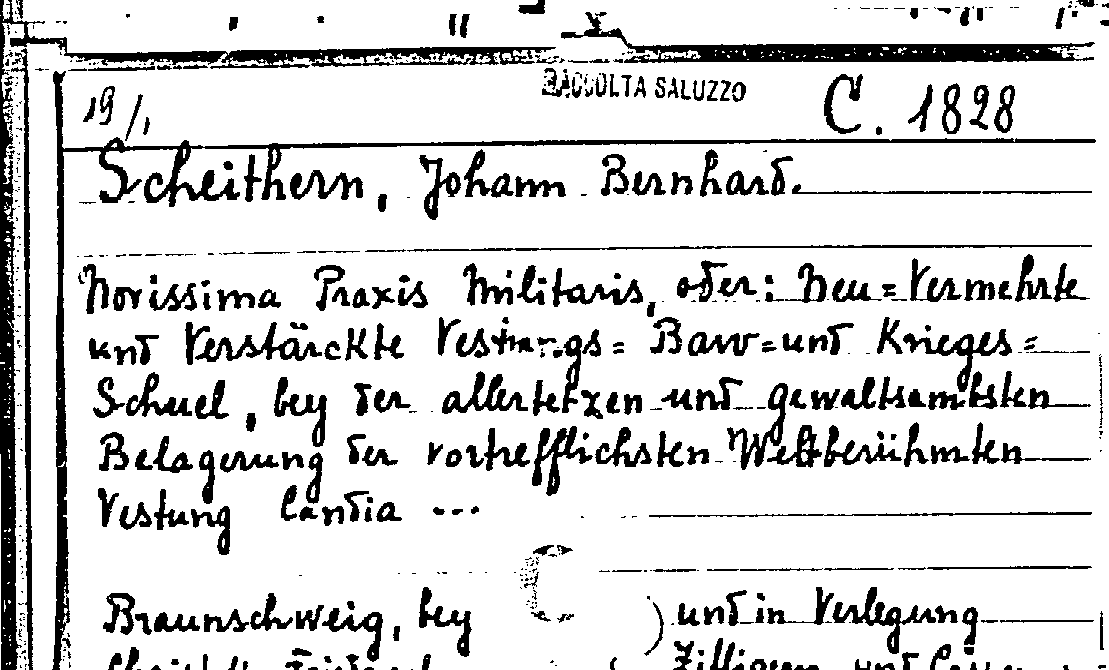 RACCOLTA SALUZZO
19/1 C. 1828
Scheithern, Johann Bernhard.
Novissima Praxis Militaris, oder: Neu=Vermehrte
und Verstärckte Vestungs= Baw=und Krieges=
Schuel, bey der allerletzen und gewaltsambsten
Belagerung der vortrefflichsten Weltberühmten
Vestung Candia ...
Braunschweig, bey ) und in Verlegung
Zilligern und